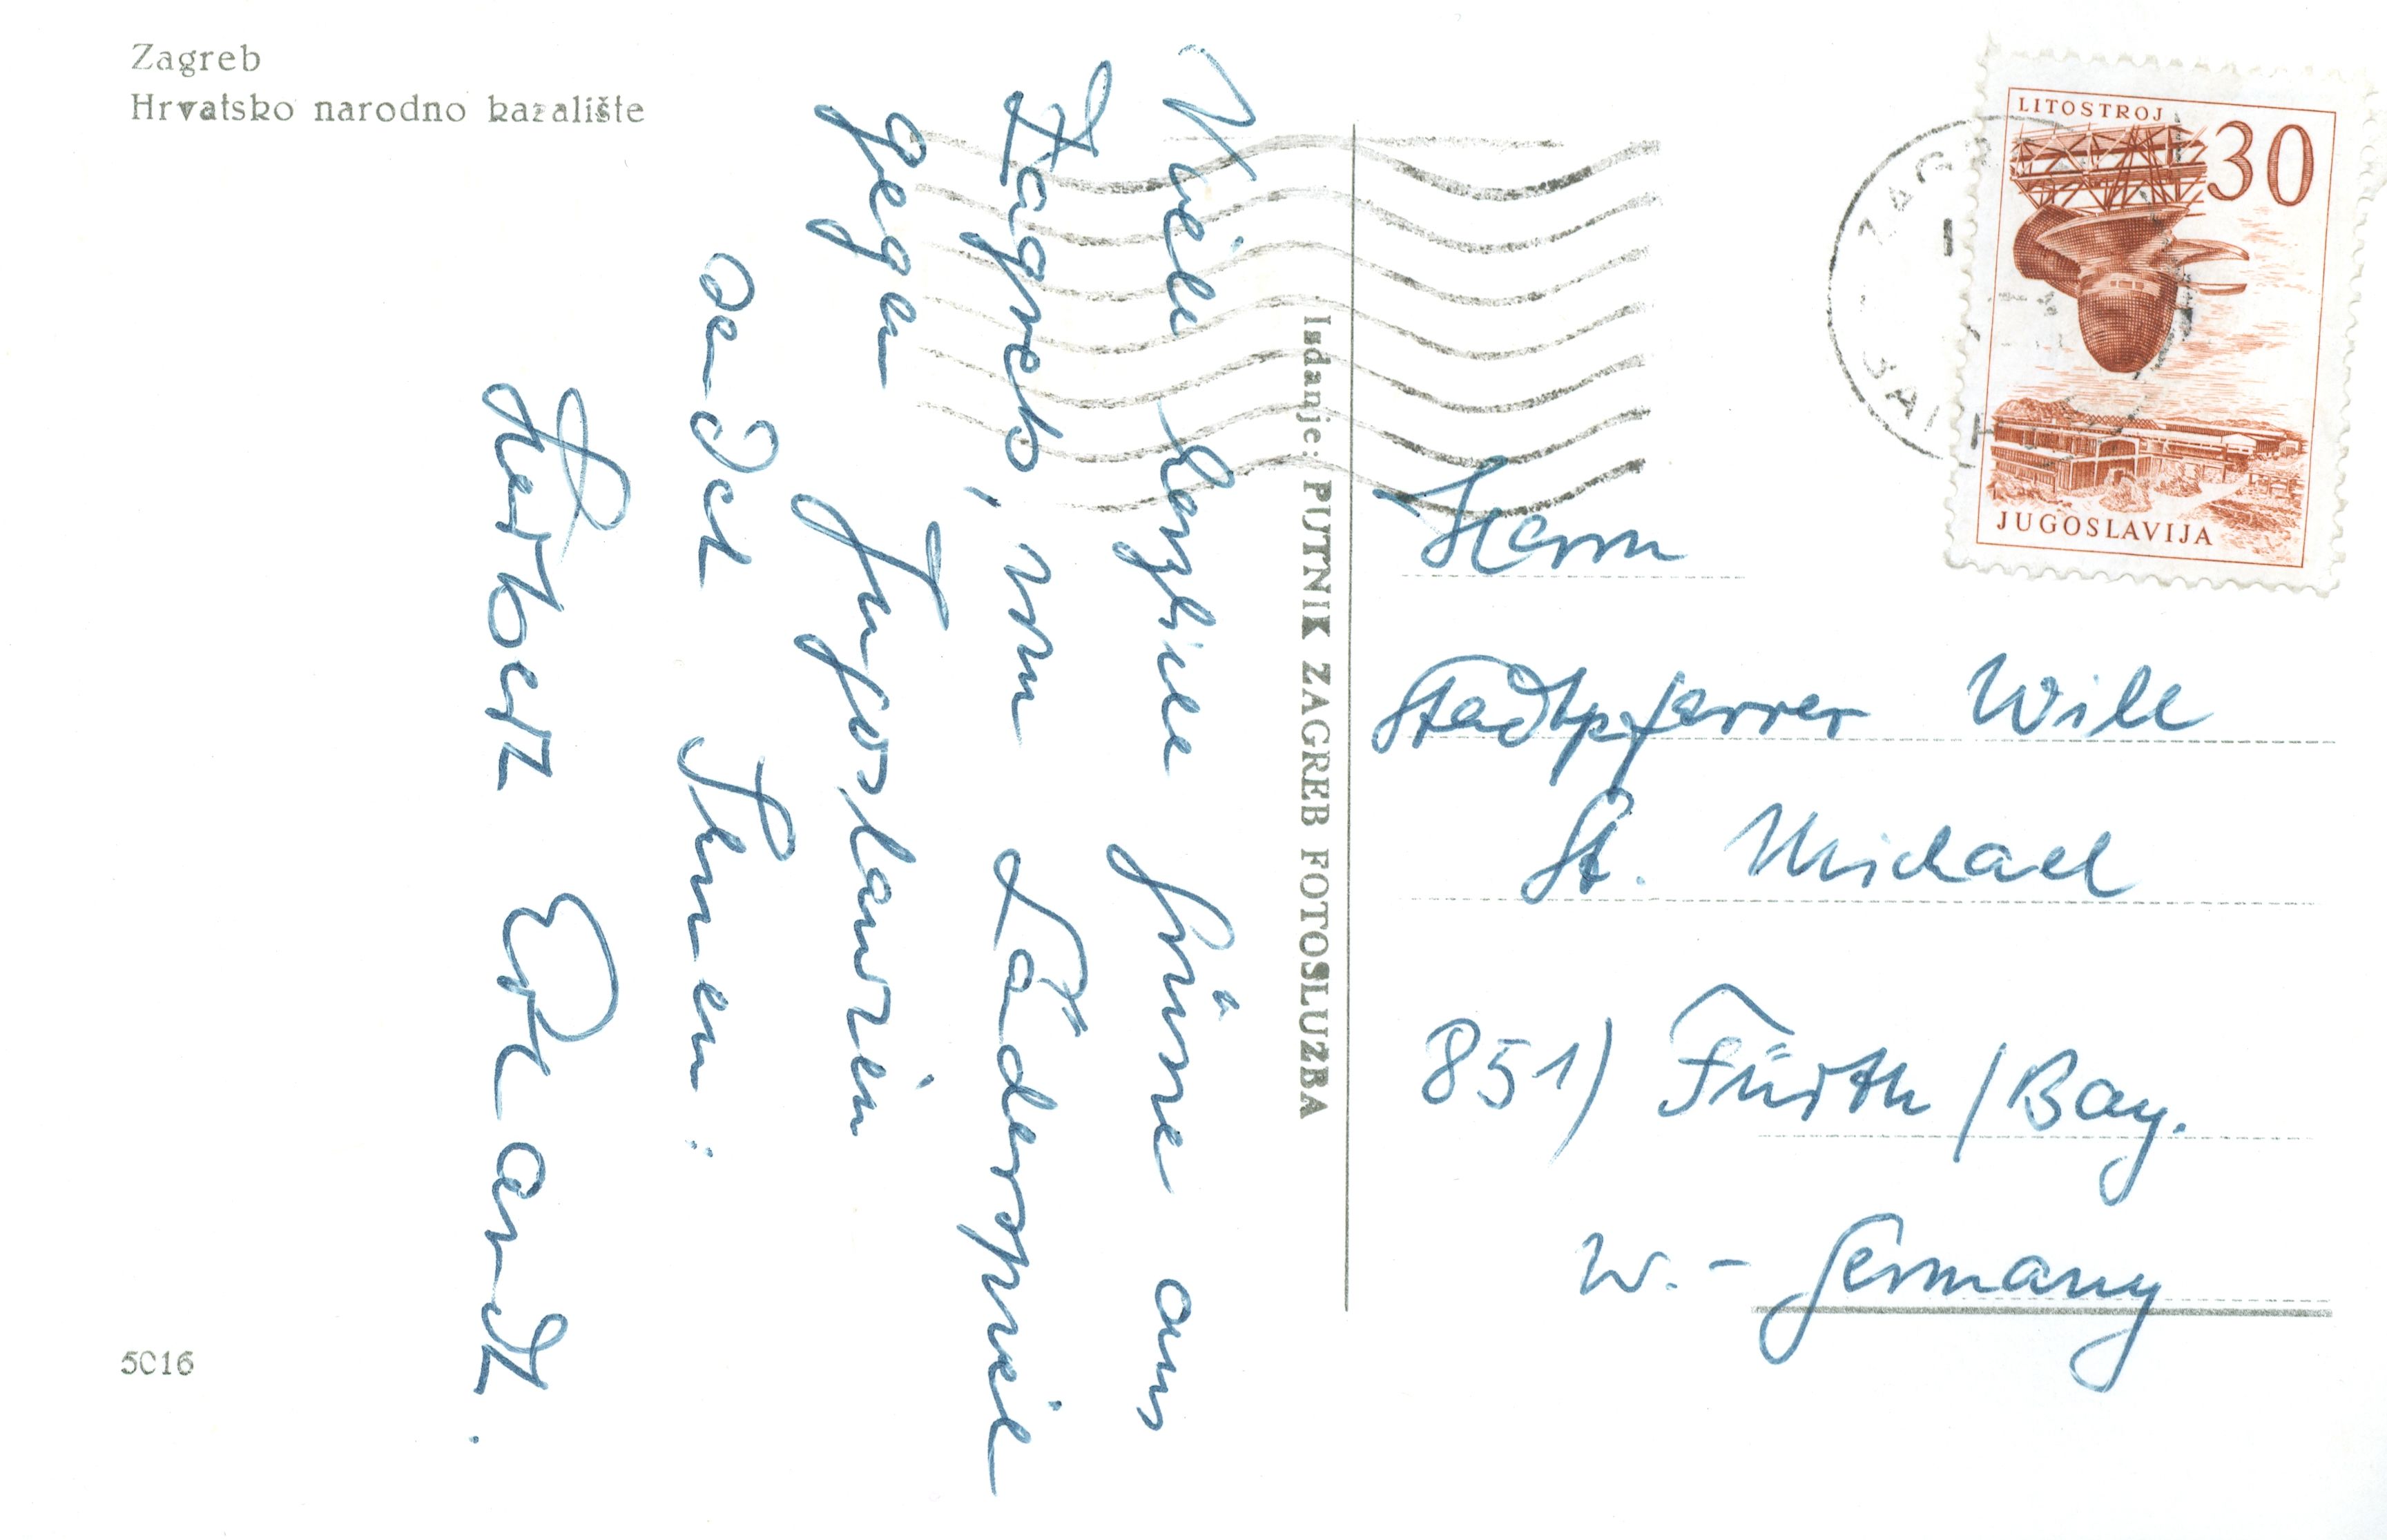 Zagreb
Hrvatsko narodno kazalište
Viele herzliche Grüsse aus
Zagreb, vom Länderspiel
gegen Jugoslawien
sendet Ihnen:
Herbert Erhardt.
5016
Izdanje: PUTNIK ZAGREB FOTOSLUŽBA
LITOSTROJ
30
JUGOSLAVIJA
Herrn
Stadtpfarrer Will
St. Michael
851) Fürth / Bay.
W.- Germany